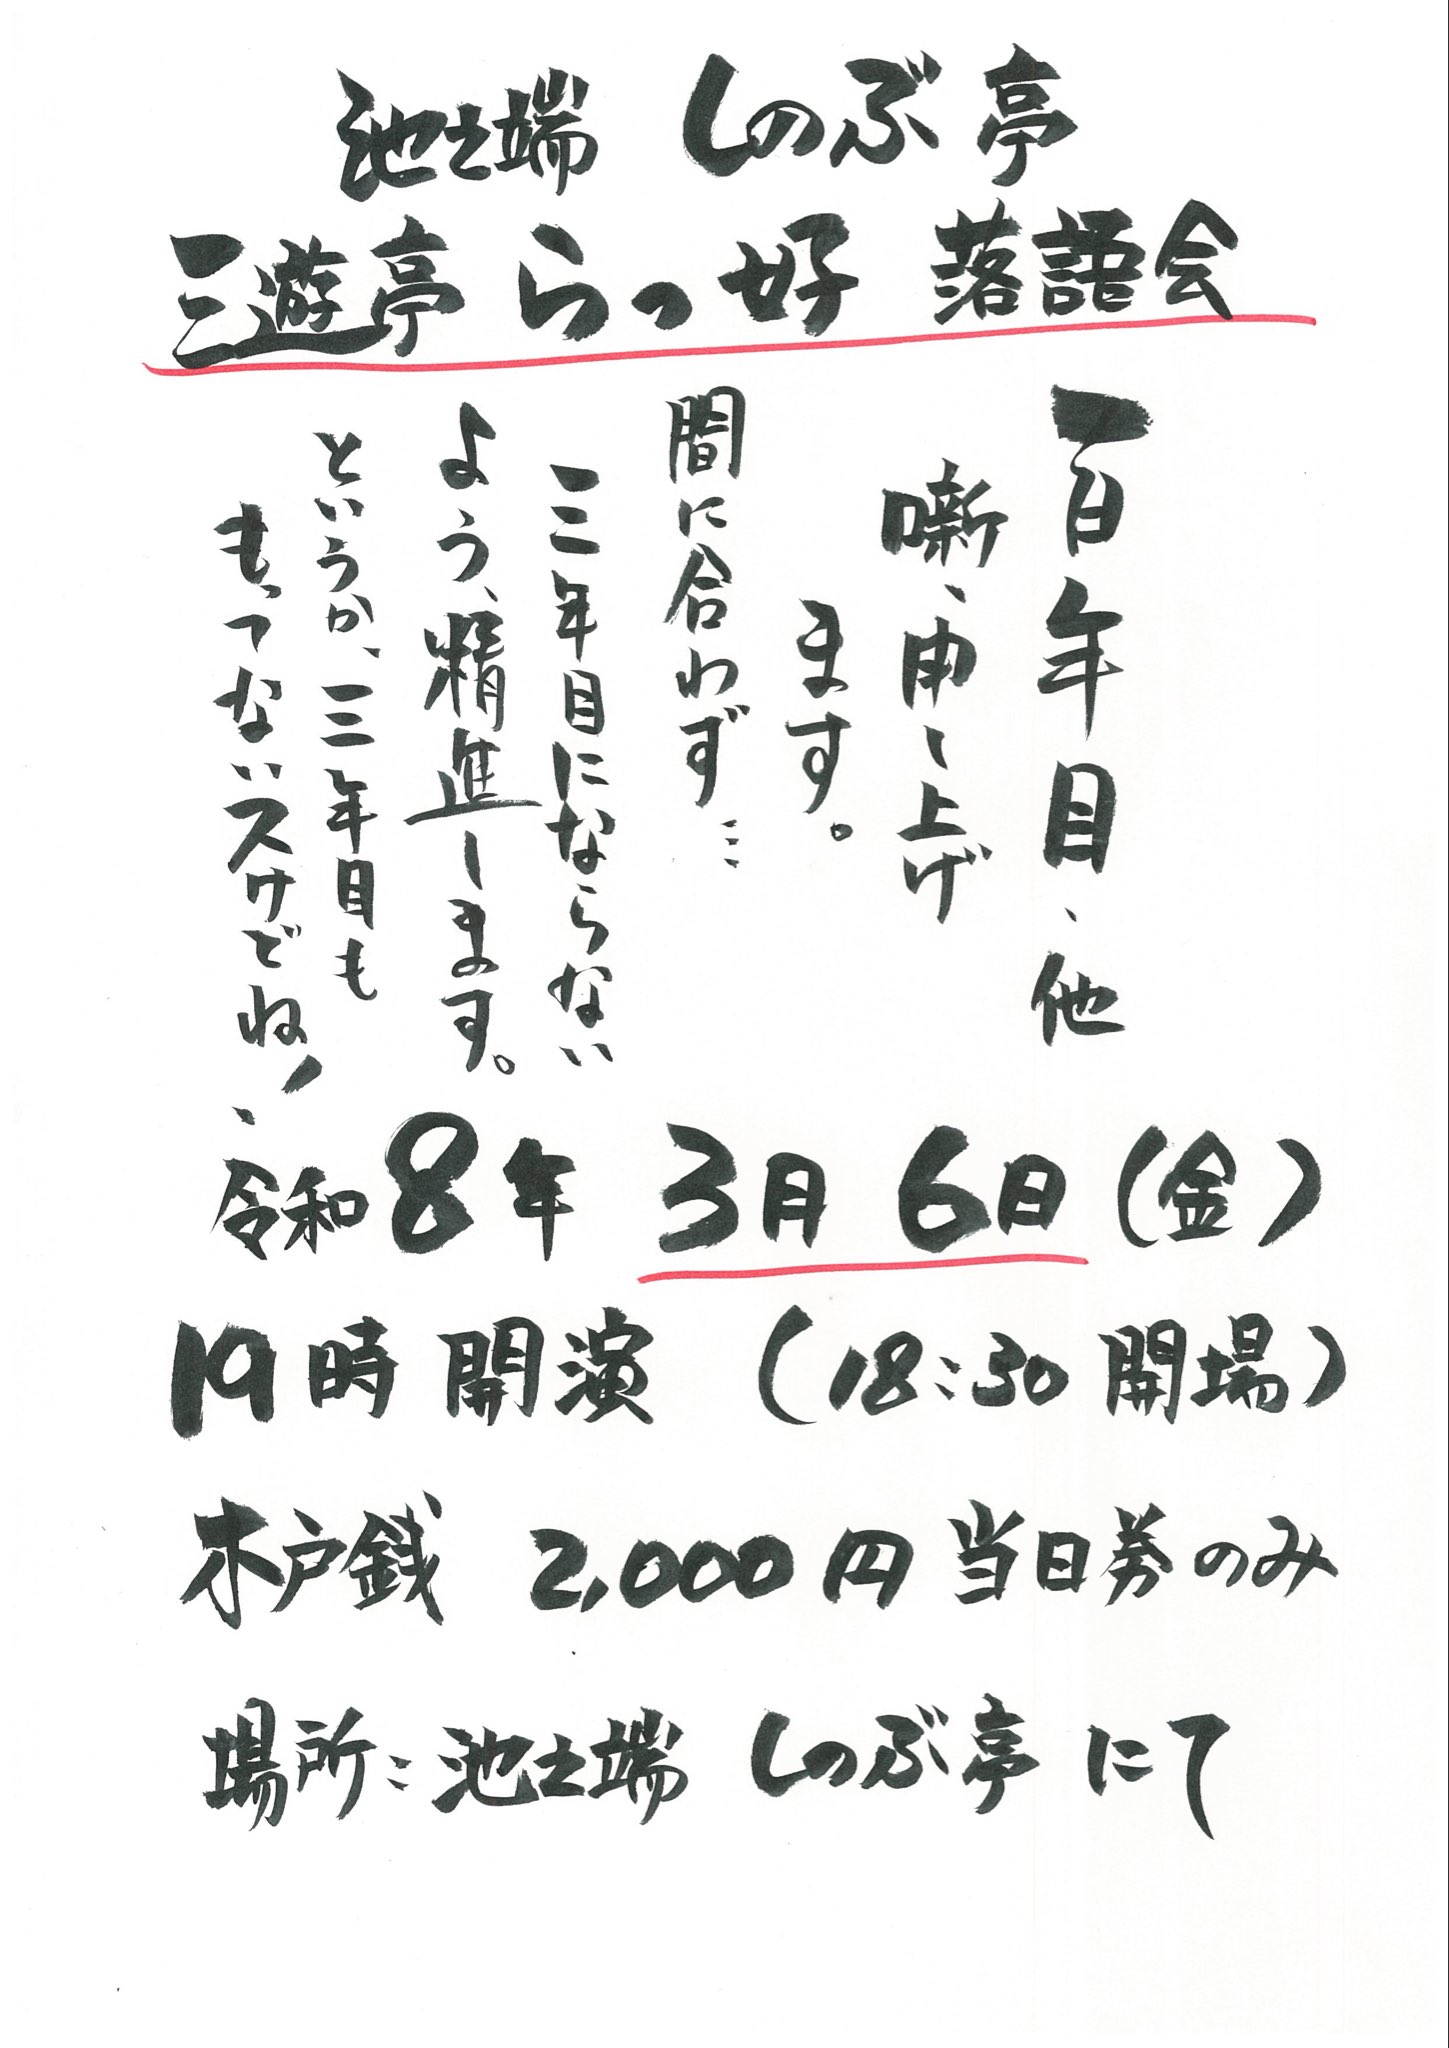 池之端 しのぶ亭
三遊亭 らっ好 落語会
百年目、他
噺、申し上げ
ます。
間に合わず……
三年目にならない
よう、精進します。
というか、三年目も
もってないスけどね!、
令和8年 3月 6日(金)
19時 開演 (18:30 開場)
木戸銭 2,000円 当日券のみ
場所:池之端 しのぶ亭 にて